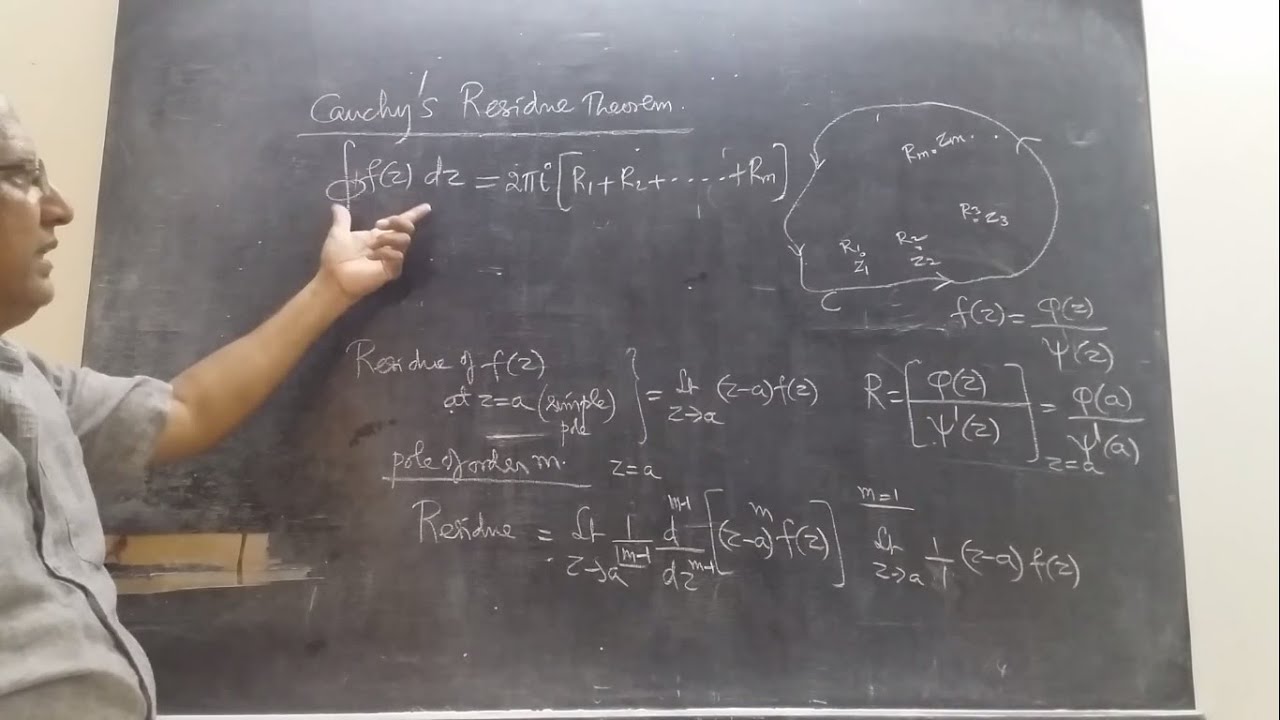 Cauchy's Residue Theorem.
∮f(z) dz = 2πi [R₁+R₂+·····+Rm]
Rm . Zm . .
R3 . Z3
R1 . Z1
R2 . Z2
C
f(z) = φ(z)/ψ(z)
Residue of f(z)
at z=a (simple pole) } = Lt z→a (z-a)f(z)
R = [φ(z)/ψ'(z)] z=a = φ(a)/ψ'(a)
pole of order m. z=a
Residue = Lt z→a 1/|m-1 d^m-1/dz^m-1 [(z-a)^m f(z)]
m=1
Lt z→a 1/1 (z-a) f(z)